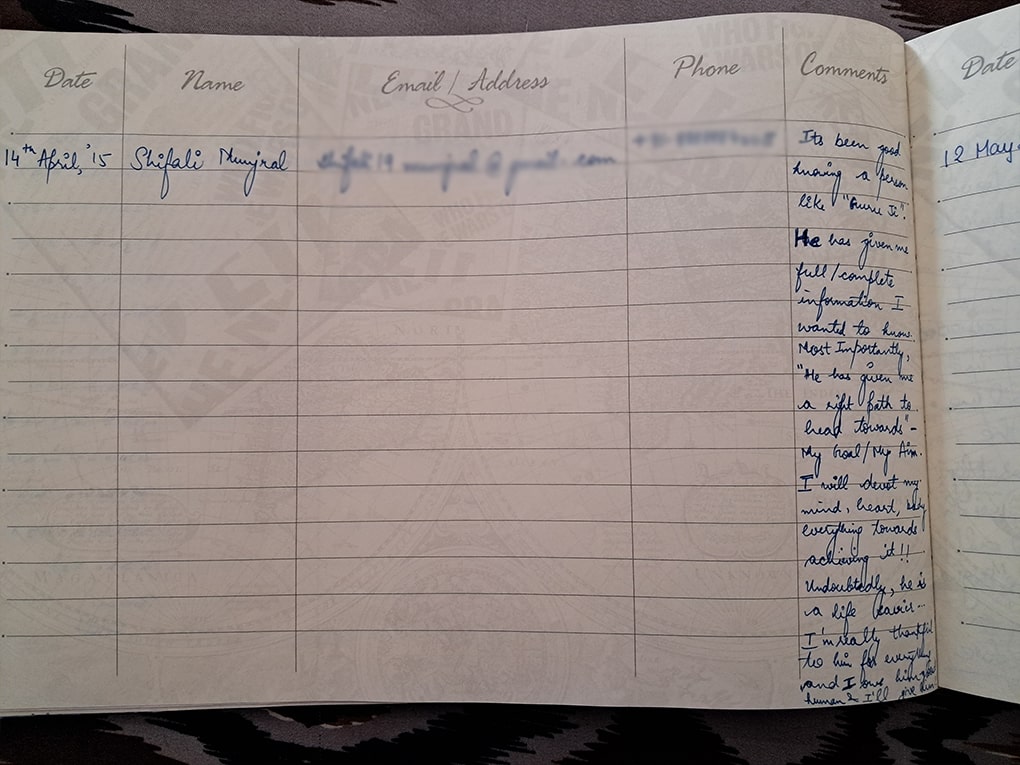 Date Name Email / Address Phone Comments Date
14th April, '15 Shifali Munjral
12 May
Its been good
knowing a person
like "Guru Ji".
He has given me
full/complete
information I
wanted to know.
Most Importantly,
"He has given me
a right path to
head towards" -
My Goal/My Aim.
I will devot my
mind, heart, body
everything towards
achieving it!!
Undoubtedly, he is
a life
I'm really thankful
to him for everything
and I owe him
human & I'll give him